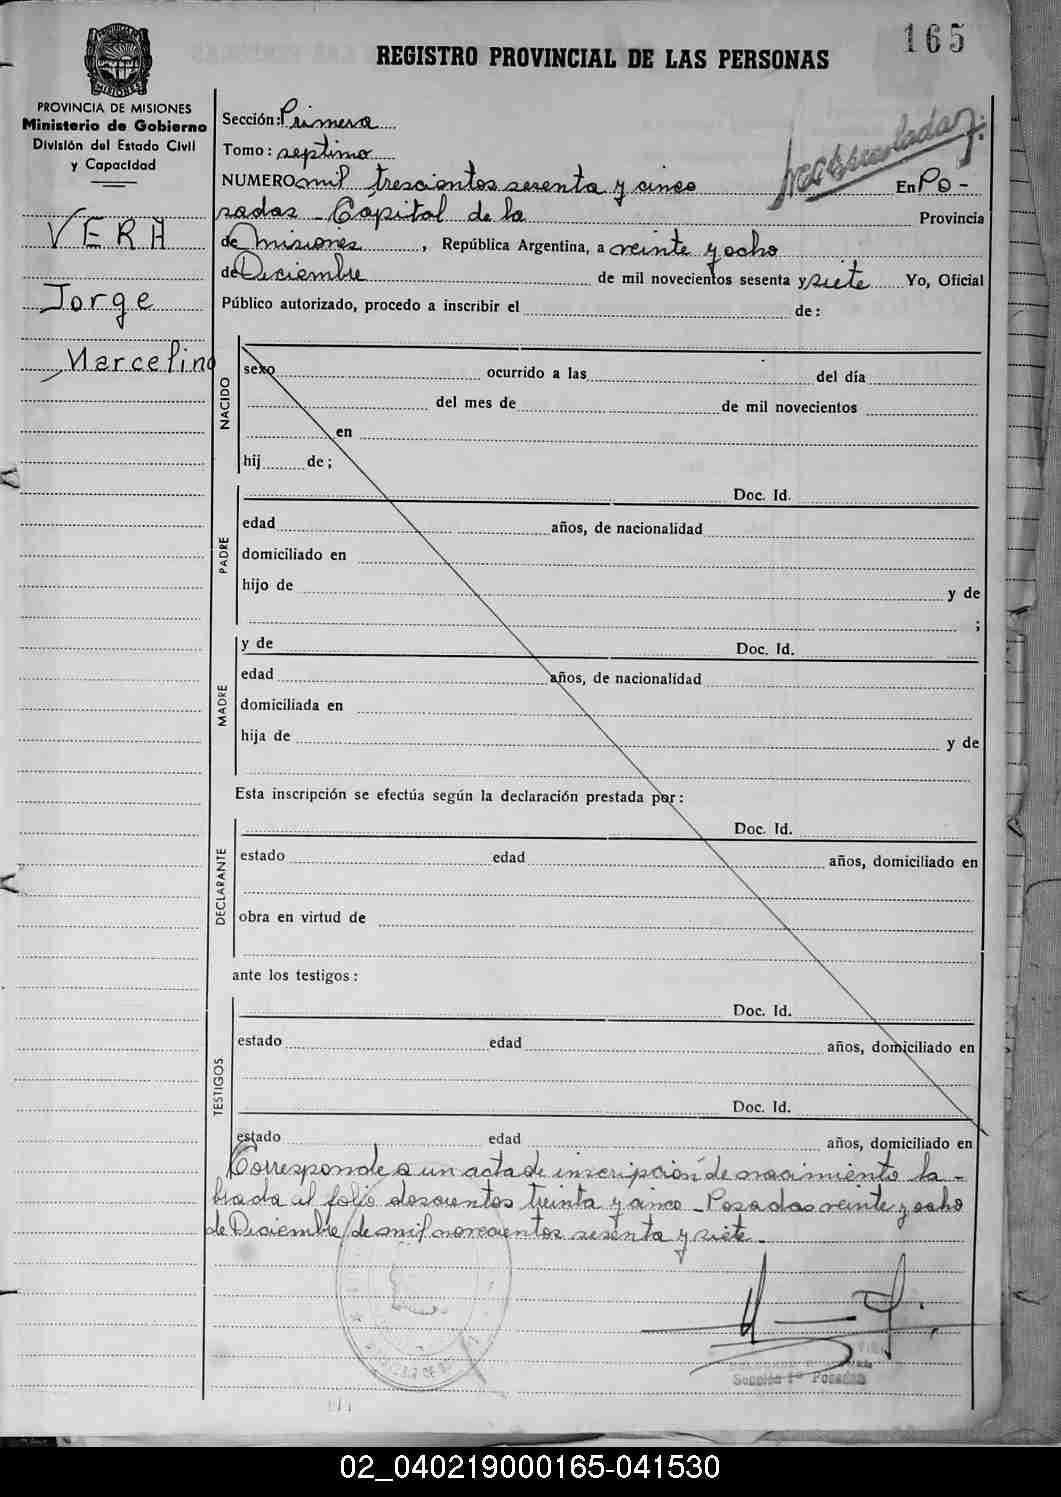 165
REGISTRO PROVINCIAL DE LAS PERSONAS
PROVINCIA DE MISIONES
Ministerio de Gobierno
División del Estado Civil
y Capacidad
VERA
Jorge
Marcelino
Sección: Primera
Tomo: septimo
NUMERO mil trescientos sesenta y cinco En Po-
sadas - Capital de la Provincia
de Misiones, República Argentina, a veinte y ocho
de Diciembre de mil novecientos sesenta y siete Yo, Oficial
Público autorizado, procedo a inscribir el de:
NACIDO
sexo ocurrido a las del día
del mes de de mil novecientos
en
hij de;
PADRE
Doc. Id.
edad años, de nacionalidad
domiciliado en
hijo de y de
;
MADRE
y de Doc. Id.
edad años, de nacionalidad
domiciliada en
hija de y de
Esta inscripción se efectúa según la declaración prestada por:
DECLARANTE
Doc. Id.
estado edad años, domiciliado en
obra en virtud de
ante los testigos:
TESTIGOS
Doc. Id.
estado edad años, domiciliado en
Doc. Id.
estado edad años, domiciliado en
Corresponde a un acta de inscripción de nacimiento la-
brada al folio doscientos treinta y cinco - Posadas veinte y ocho
de Diciembre de mil novecientos sesenta y siete.
Sección 1ª Posadas
02_040219000165-041530